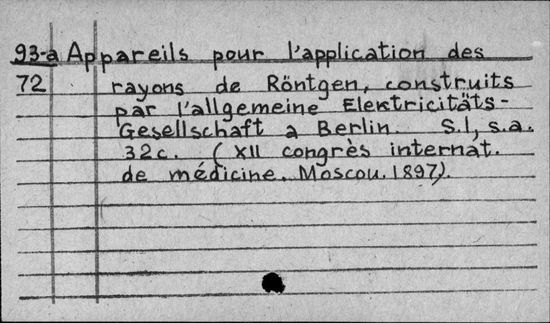 93-a Appareils pour l'application des
72 rayons de Röntgen, construits
par l'allgemeine Elektricitäts-
Gesellschaft a Berlin. S.l, s.a.
32c. (XII congrès internat.
de médicine. Moscou. 1897).